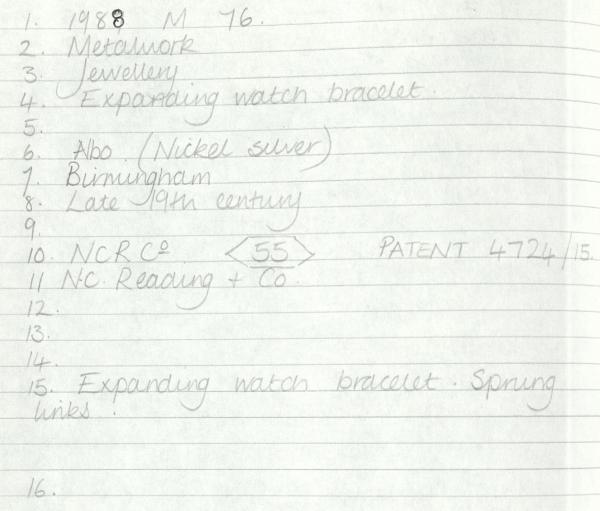 1. 1988 M 76.
2. Metalwork
3. Jewellery
4. Expanding watch bracelet.
5.
6. Albo. (Nickel silver)
7. Birmingham
8. Late 19th century
9.
10. NCR Cº <55> PATENT 4724/15.
11 N.C. Reading + Co.
12.
13.
14.
15. Expanding watch bracelet. Sprung
links.
16.